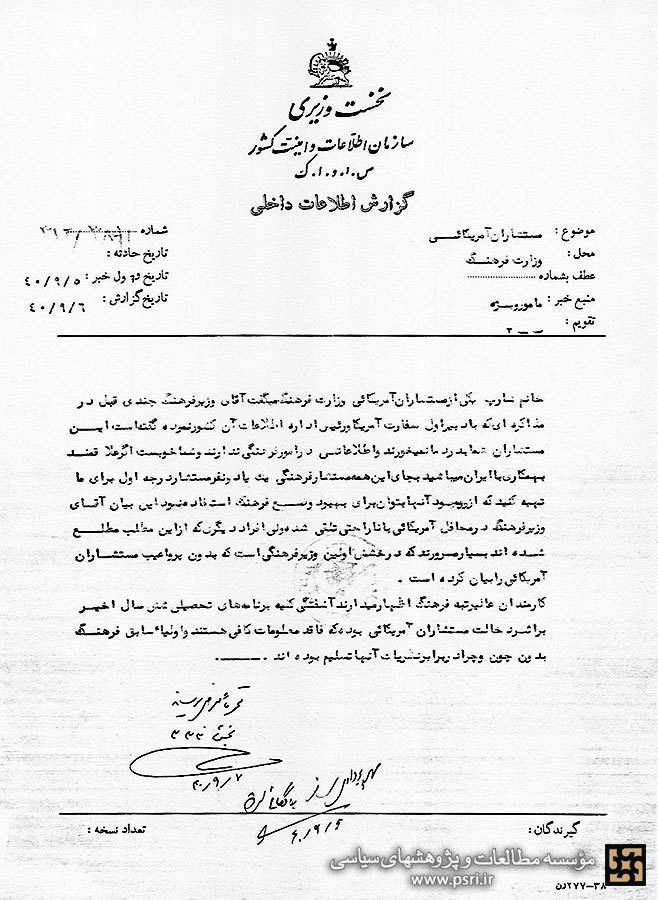 نخست وزیری
سازمان اطلاعات و امنیت کشور
س.ا.و.ا.ک
گزارش اطلاعات داخلی
موضوع : مستشاران آمریکائی
محل : وزارت فرهنگ
عطف بشماره
منبع خبر : مامور ویژه
تقویم :
شماره
تاریخ حادثه :
تاریخ وصول خبر : ۴۰/۹/۵
تاریخ گزارش : ۴۰/۹/۶
خانم شارپ یکی از مستشاران آمریکائی وزارت فرهنگ میگفت آقای وزیر فرهنگ چندی قبل در
مذاکره ای که با دبیر اول سفارت آمریکا و رئیس اداره اطلاعات آن کشور نموده گفته است این
مستشاران شما بدرد ما نمیخورند و اطلاعاتی در امور فرهنگی ندارند و شما خوبست اگر عملا قصد
بهمکاری با ایران میباشید بجای این همه مستشار فرهنگی یک یا دو نفر مستشار درجه اول برای ما
تهیه کنید که از وجود آنها بتوان برای بهبود وضع فرهنگ استفاده نمود این بیان آقای
وزیر فرهنگ در محافل آمریکائی با ناراحتی تلقی شده ولی افراد دیگری که از این مطلب مطلع
شده اند بسیار مسرورند که درخشش اولین وزیر فرهنگی است که بدون پروا عیب مستشاران
آمریکائی را بیان کرده است .
کارمندان عالیرتبه فرهنگ اظهار میدارند آشفتگی کلیه برنامه های تحصیلی شش سال اخیر
بر اثر دخالت مستشاران آمریکائی بوده که فاقد معلومات کافی هستند و اولیاء سابق فرهنگ
بدون چون و چرا در برابر نظریات آنها تسلیم بوده اند .
بخش ۳۳۳
۴۰/۹/۷
بایگانی
۴۰/۹/۶
گیرندگان :
تعداد نسخه :
مؤسسه مطالعات و پژوهشهای سیاسی
www.psri.ir